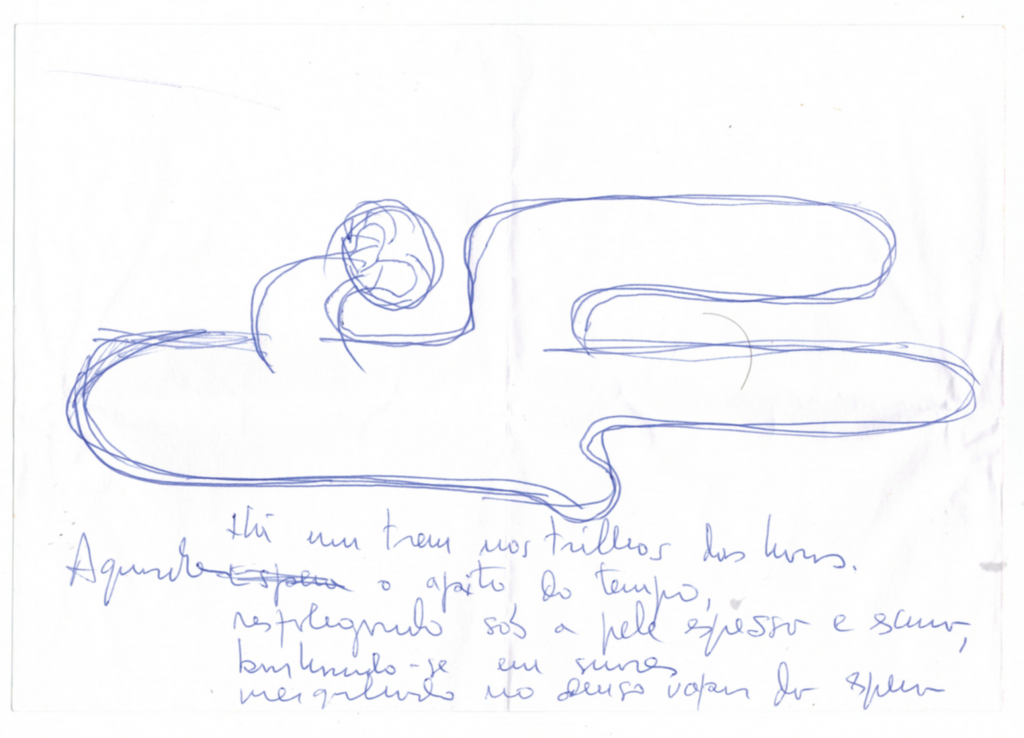 Há um trem nos trilhos das horas.
Aguarda o apito do tempo,
resfolegando sob a pele espessa e escura,
banhando-se em suores
mergulhado no denso vapor da espera